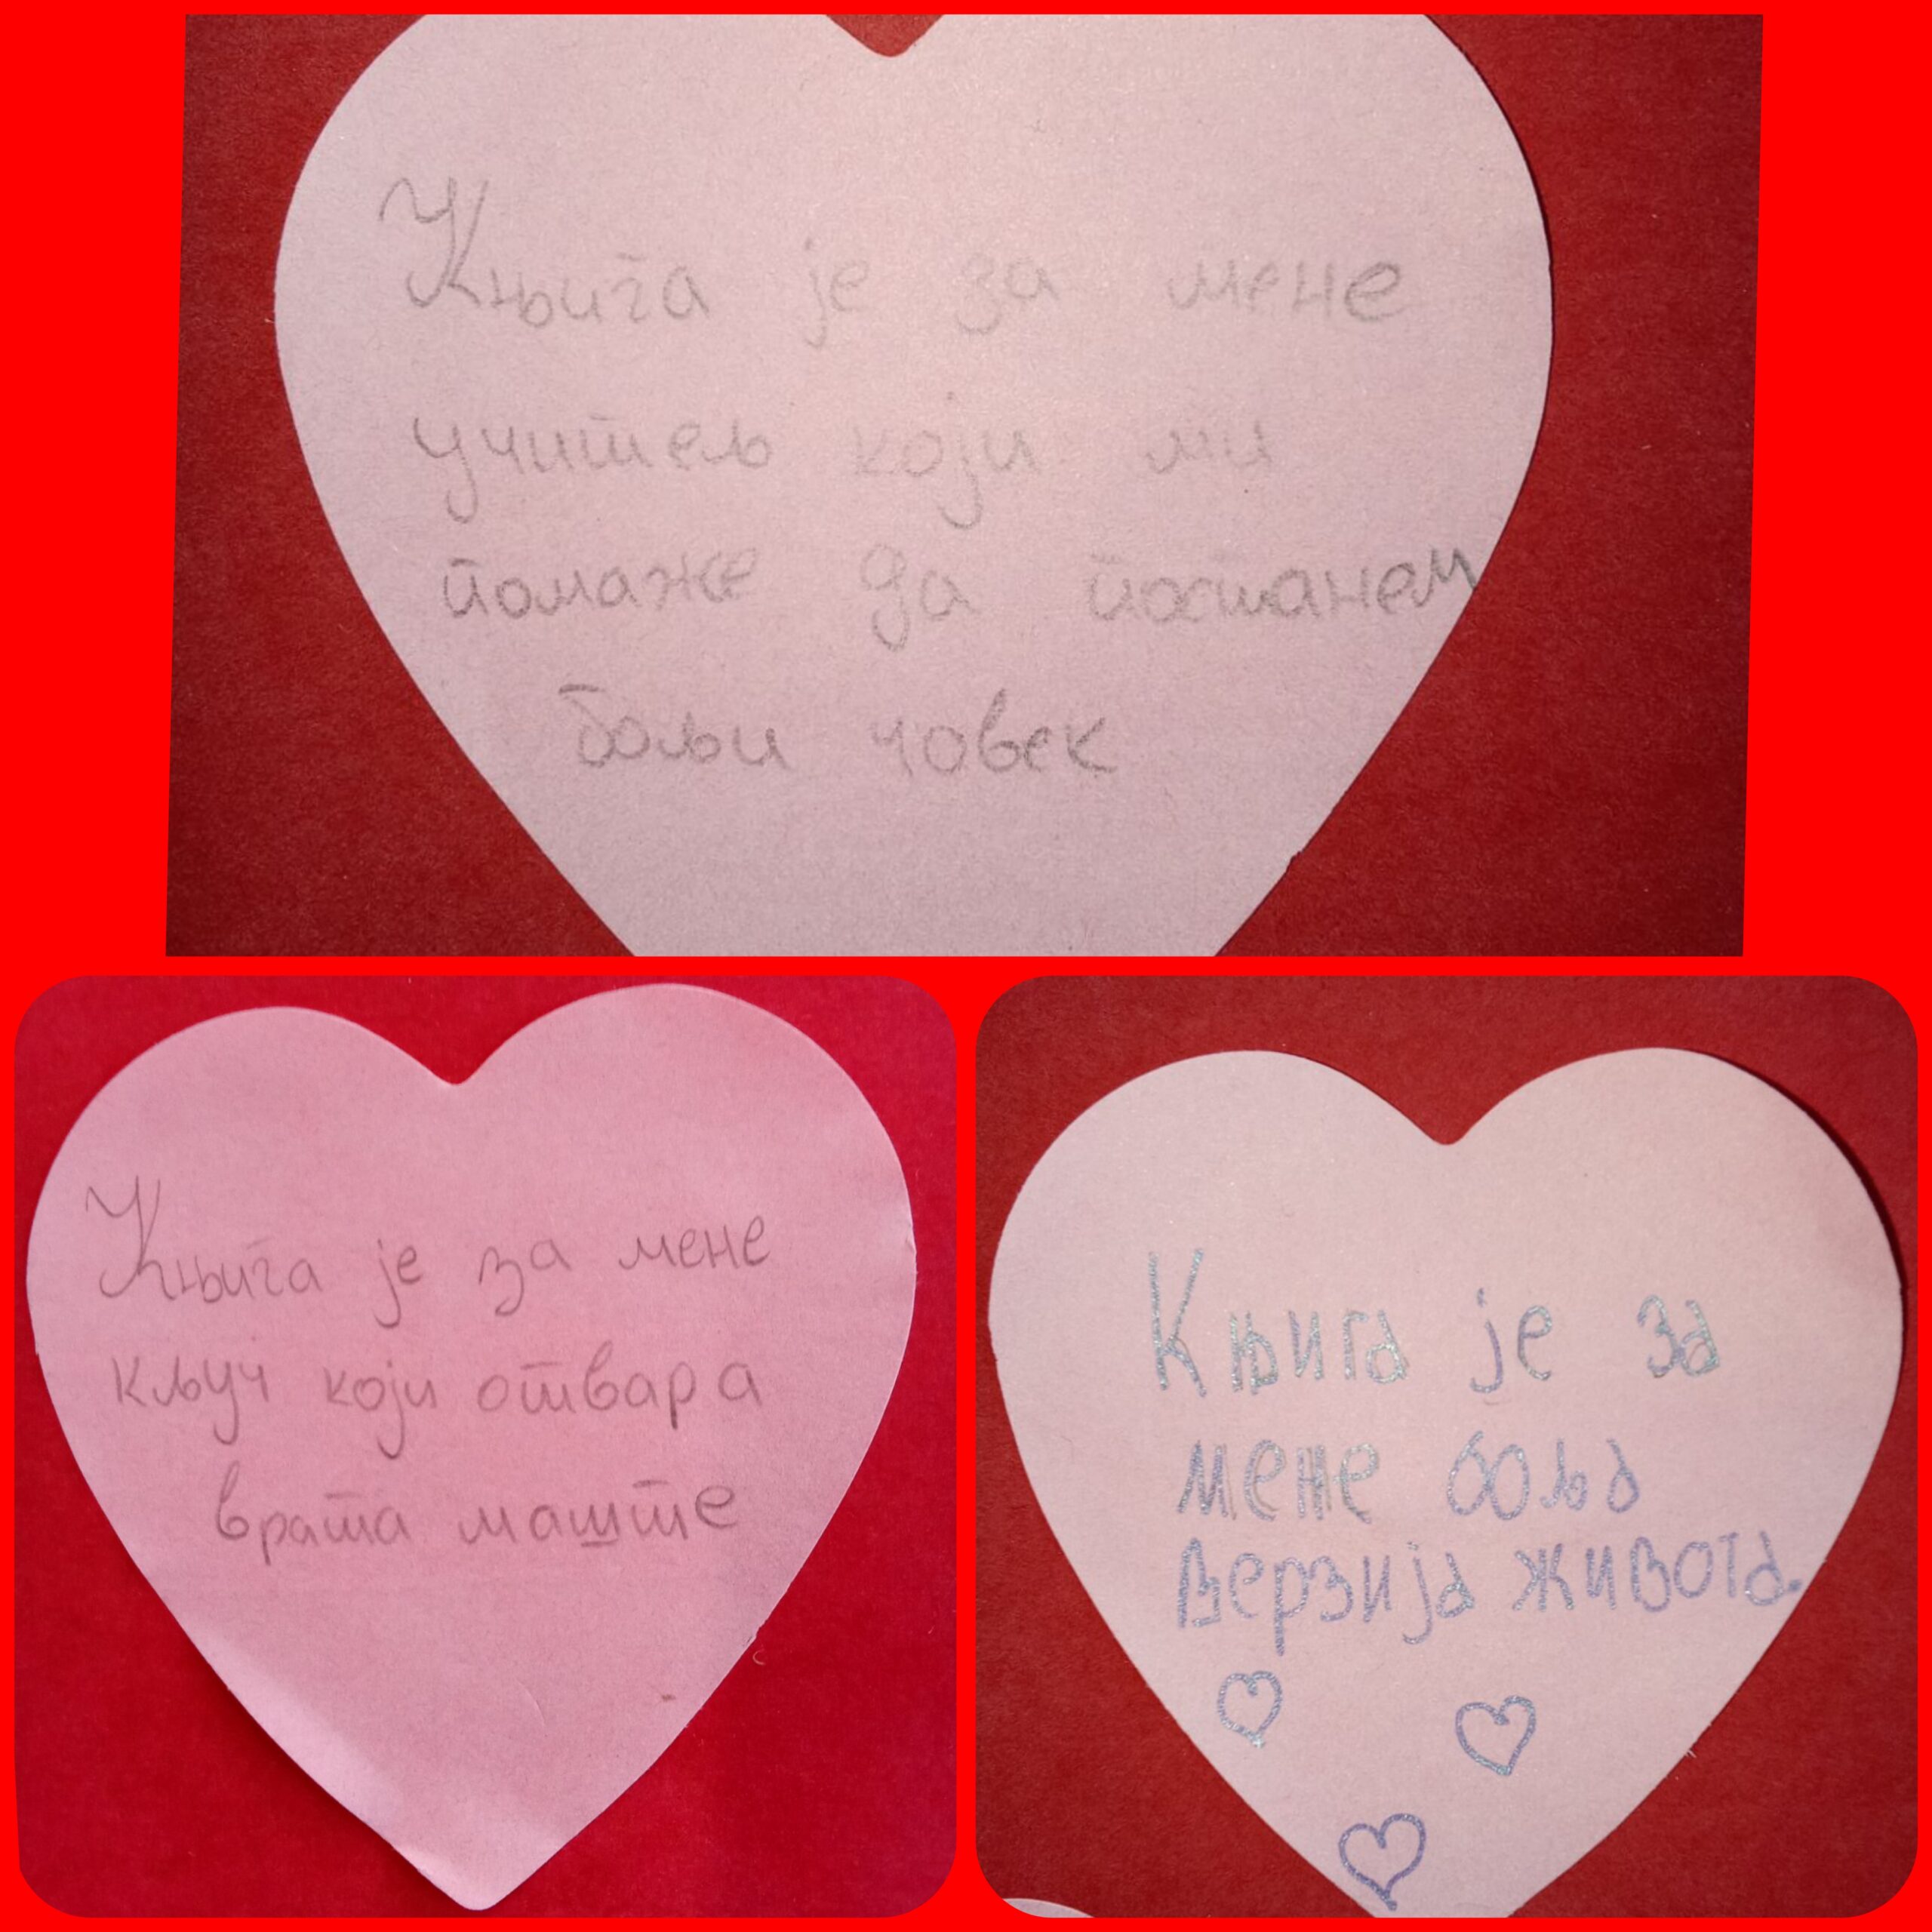 Књига је за мене
учитељ који ми
помаже да постанем
бољи човек
Књига је за мене
кључ који отвара
врата маште
Књига је за
мене боља
верзија живота.